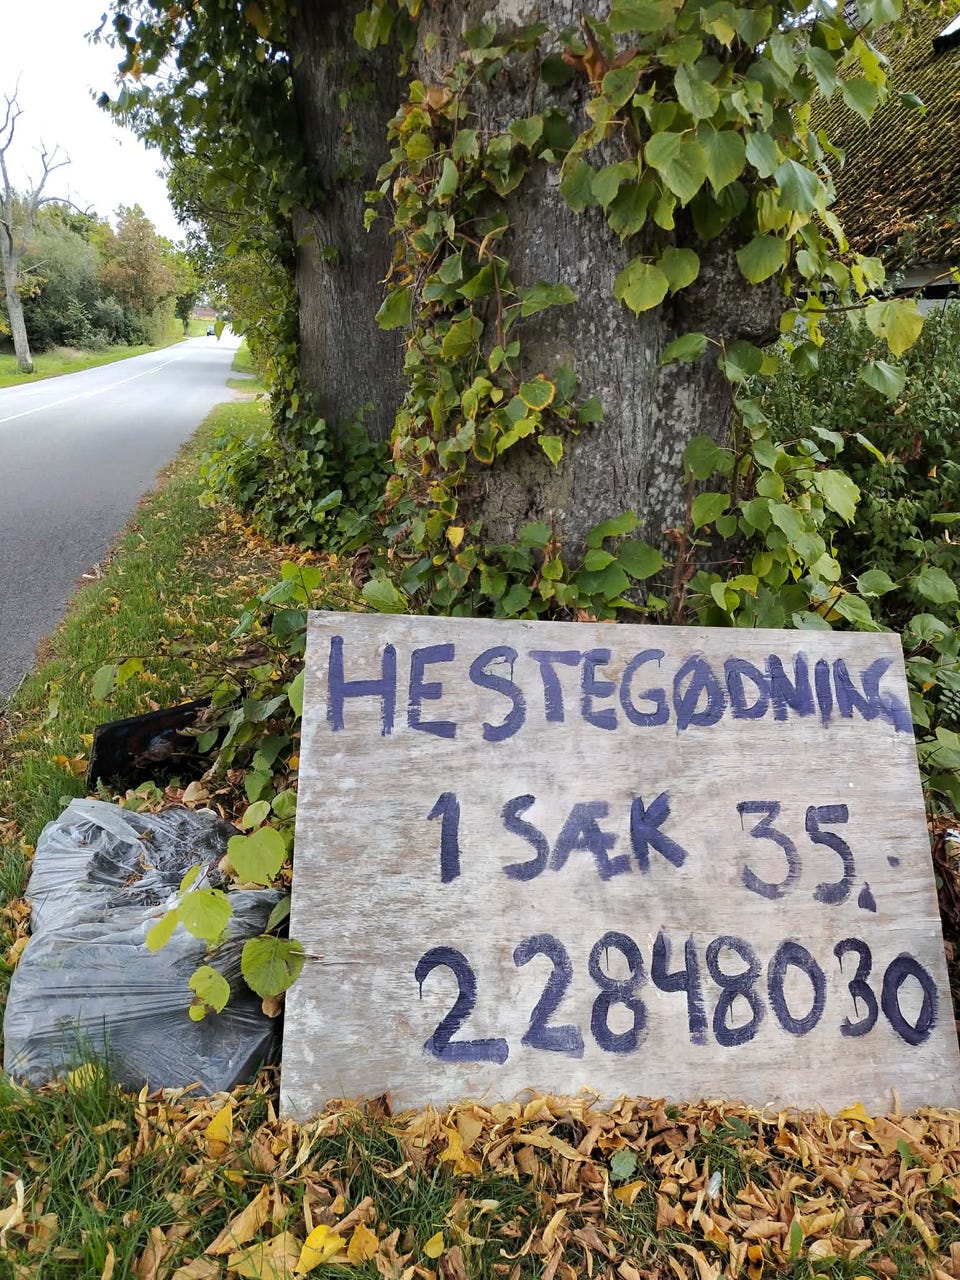 HESTEGØDNING
1 SÆK 35.
22848030